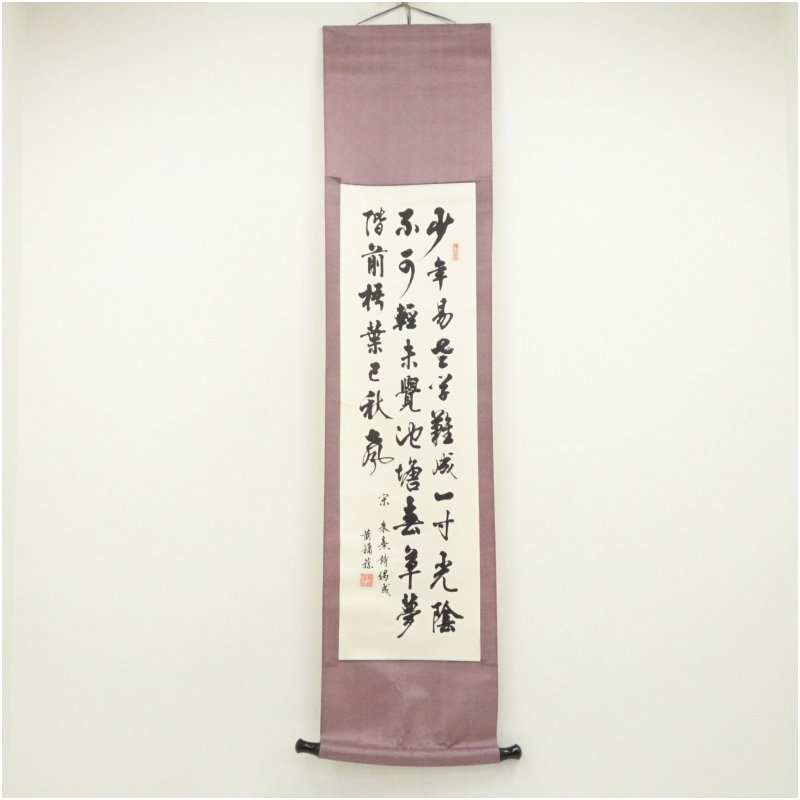 少年易老学難成一寸光陰
不可輕未覺池塘春草夢
階前梧葉已秋声
宋 朱熹詩偶成